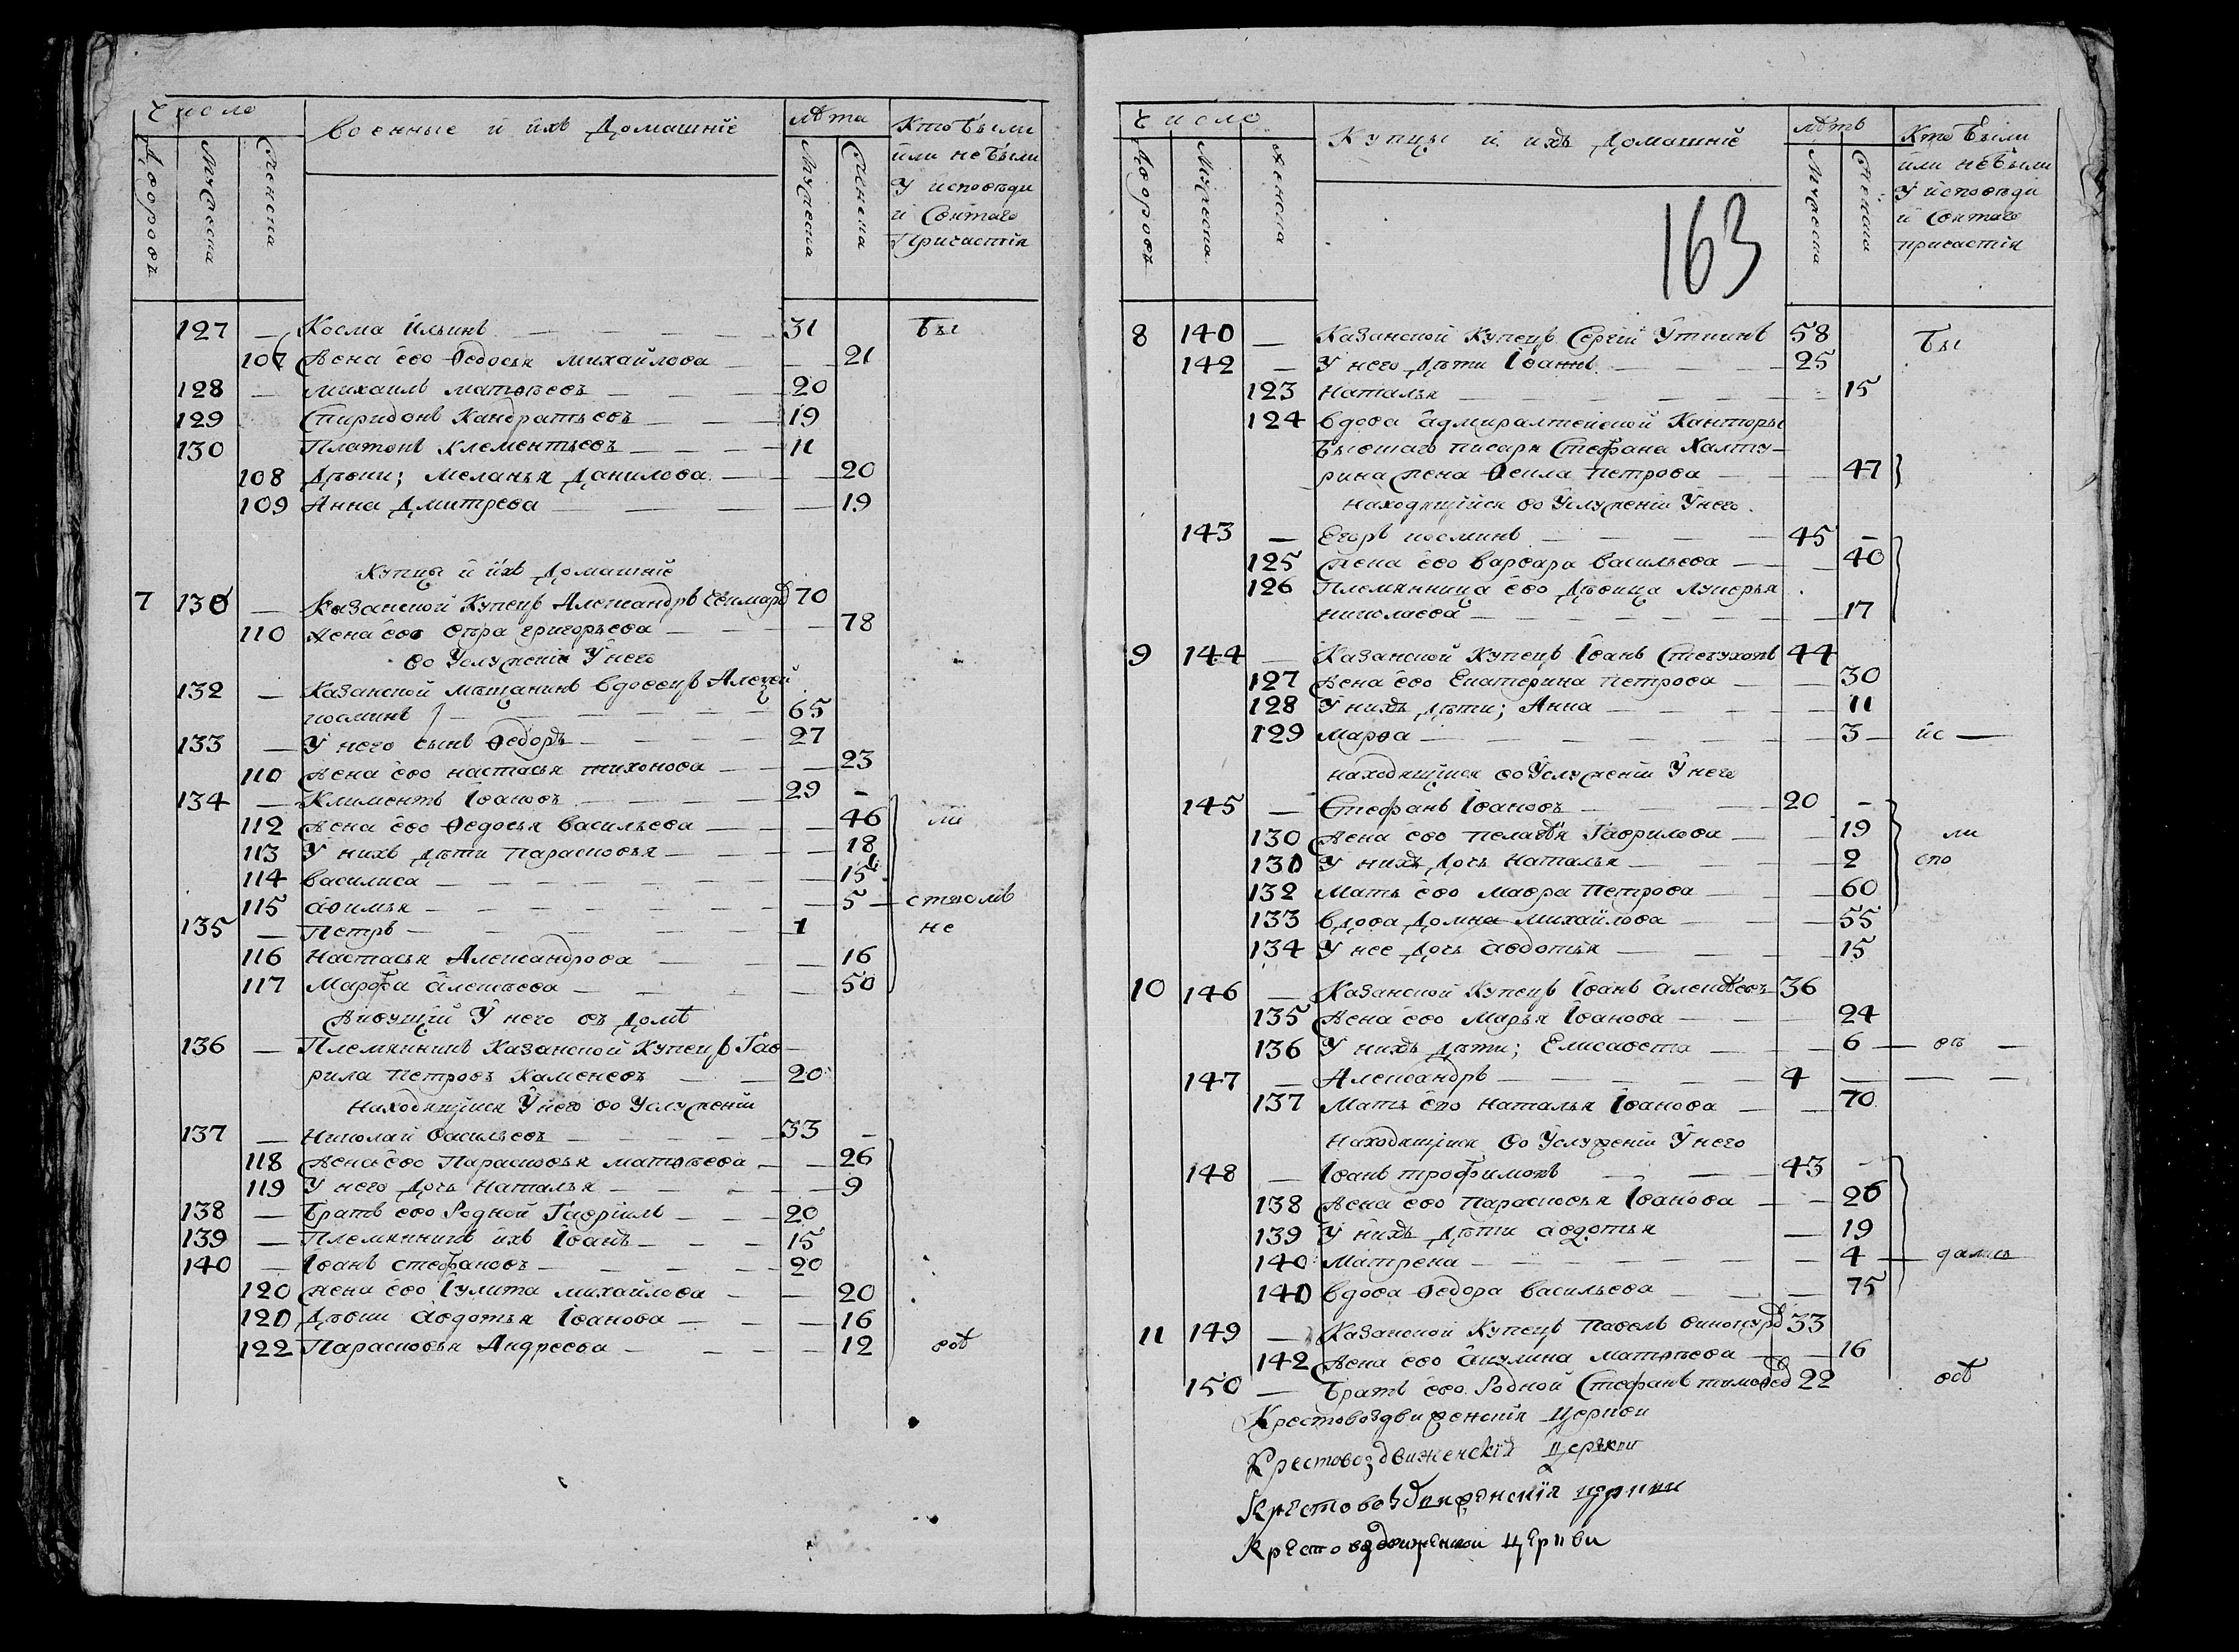 Число
Военные и ихъ Домашніе
лѣта
Кто были
или не были
у исповѣди
и Святаго
Причастія
Дворовъ
Мужеска
Женска
Мужеска
Женска
127 — Косма Ильинъ — 31 бы
107 Жена ево Ѳедосья Михайлова — 21
128 — Михаилъ Матвѣевъ — 20
129 Спиридонъ Кандратьевъ — 19
130 Платонъ Клементьевъ — 11
108 Дѣвки; Меланья Данилова — 20
109 Анна Дмитрева — 19
Купцы и ихъ Домашніе
7 130 — Казанской Купецъ Александръ 70
110 Жена ево Григорьева — 78
во Услуженіи У него
132 — Казанской мѣщанинъ вдовецъ Алезей
Косминъ — 65
133 — У него сынъ Ѳедоръ — 27
110 Жена ево Настасья Тихонова — 23
134 — Климентъ Івановъ — 29 —
112 Жена ево Ѳедосья Васильева — 46 ли
113 У нихъ дѣти Парасковья — 18
114 Василиса — 15
115 Афимья — 5 —
135 — Петръ — 1 не
116 Настасья Александрова — 16
117 Марфа Алексѣева — 50
Живущій У него въ домѣ
136 — Племянникъ Казанской Купецъ Гав-
рила Петровъ Каменевъ — 20
Находящійся У него во Услуженіи
137 — Николай Васильевъ — 33 —
118 Жена ево Парасковья Матвѣева — 26
119 У него дочь Наталья — 9
138 — Братъ ево Родной Гавріилъ — 20
139 — Племянникъ ихъ Іванъ — 15
140 — Іванъ Стефановъ — 20
120 жена ево Іулита Михайлова — 20
120 Дѣвки Авдотья Іванова — 16
122 Парасковья Андреева — 12
Число
Купцы и ихъ Домашніе
лѣтъ
Кто были
или не были
У исповѣди
и Святаго
причастія
Дворовъ
Мужеска
Женска
Мужеска
Женска
163
8 140 — Казанской Купецъ Сергій Уткинъ 58 бы
142 — У него Дѣти Іванъ — 25
123 Наталья — 15
124 вдова Адмиралтейской Канторы
бывшаго писаря Стефана Халту-
рина жена Ѳекла Петрова — 47
Находящійся во Услуженіи У него
143 — Егоръ Косминъ — 45 —
125 жена ево Варвара Васильева — 40
126 Племянница ево Дѣвица Лукерья
Николаева — 17
9 144 — Казанской Купецъ Іванъ 44
127 Жена ево Екатерина Петрова — 30
128 У нихъ дѣти; Анна — 11
129 Марѳа — 3 — ис —
Находящійся во Услуженіи У него
145 — Стефанъ Івановъ — 20 —
130 Жена ево Пелагѣя Гаврилова — 19 ли
130 У нихъ дочь Наталья — 2 спо
132 Мать ево Мавра Петрова — 60
133 вдова Домна Михайлова — 55
134 У нее дочь Авдотья — 15
10 146 — Казанской Купецъ Іванъ Алексѣевъ 36
135 Жена ево Марья Іванова — 24
136 У нихъ дѣти; Елисавета — 6 — вѣ —
147 — Александръ — 4 — — —
137 Мать ево Наталья Іванова — 70
Находящійся во Услуженіи У него
148 — Іванъ Трофимовъ — 43 —
138 Жена ево Парасковья Іванова — 26
139 У нихъ дѣти Авдотья — 19
140 Матрена — 4 — дались
140 вдова Ѳедора Васильева — 75
11 149 — Казанской Купецъ Павелъ 33
142 Жена ево Акулина Матвѣева — 16
150 — Братъ ево Родной Стефанъ 22
Крестовоздвиженскія Церкви
Крестовоздвиженскія церкви
Крестовоздвиженскія церкви
Крестовоздвиженской церкви